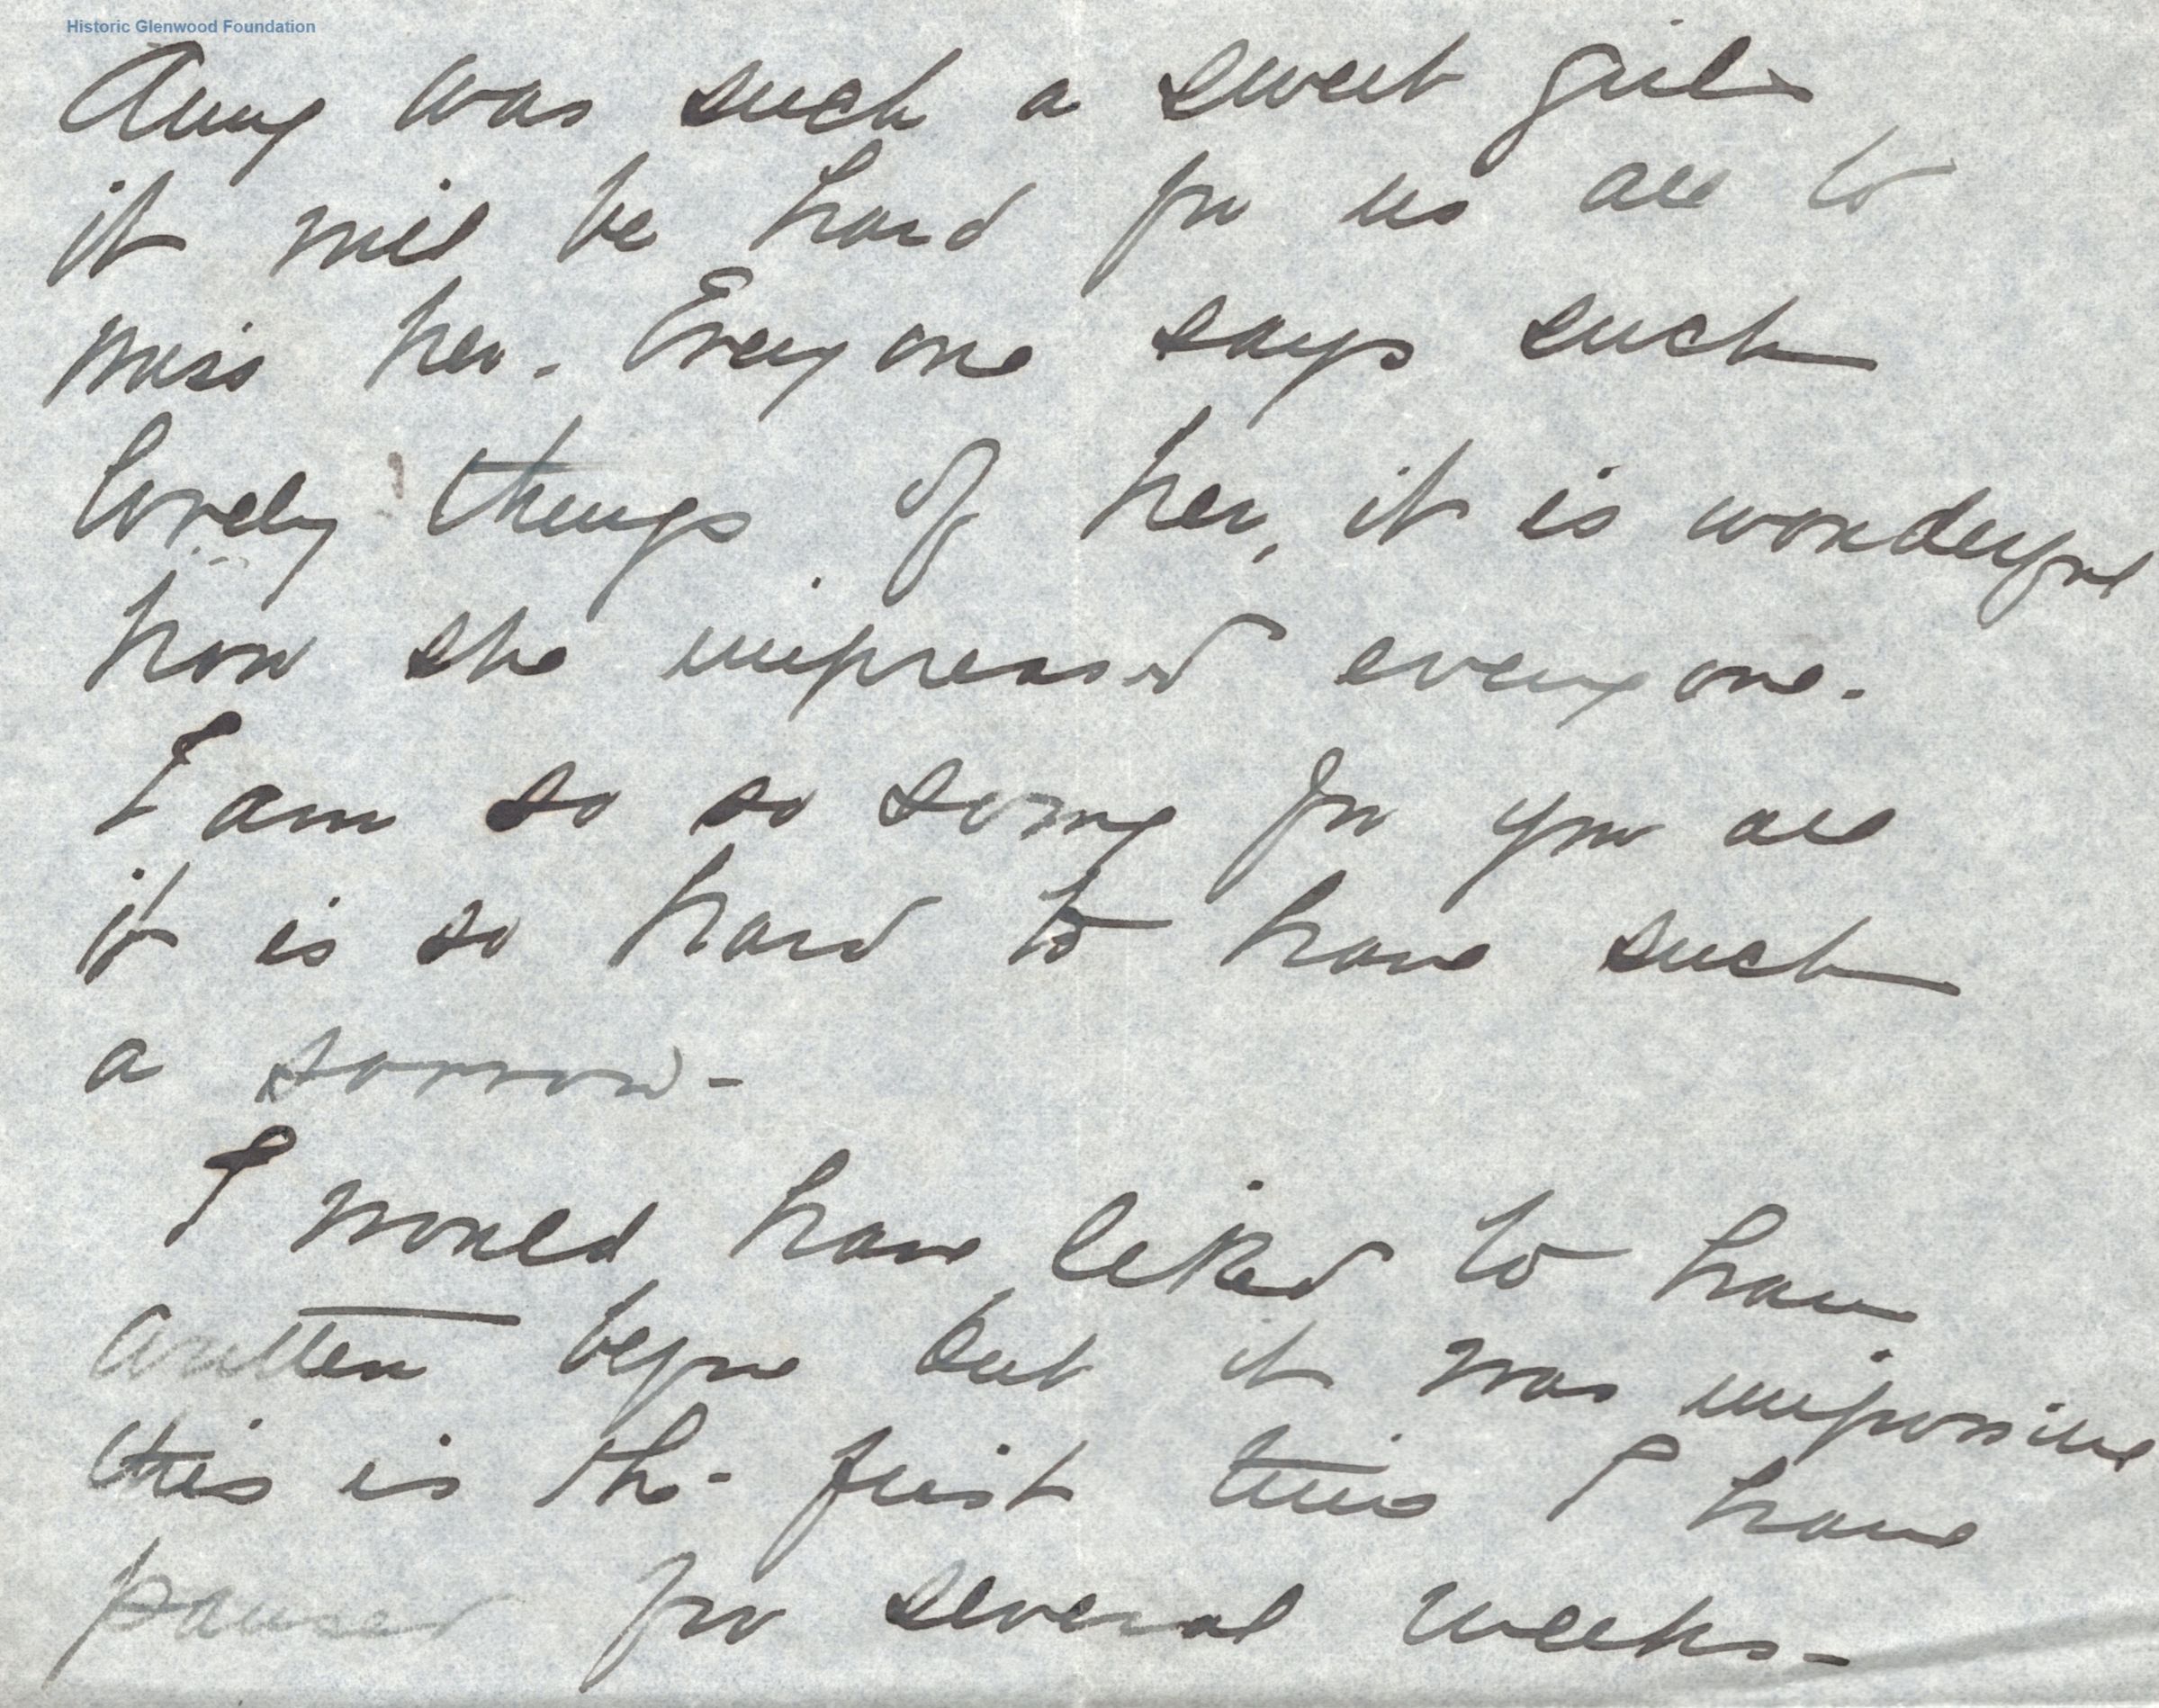 Historic Glenwood Foundation
Amy was such a sweet girl
it will be hard for us all to
miss her - Every one says such
lovely things of her, it is wonderful
how she impressed every one -
I am so so sorry for you all
it is so hard to have such
a sorrow -
I would have liked to have
written before but it was impossible
this is the first time I have
paused for several weeks -